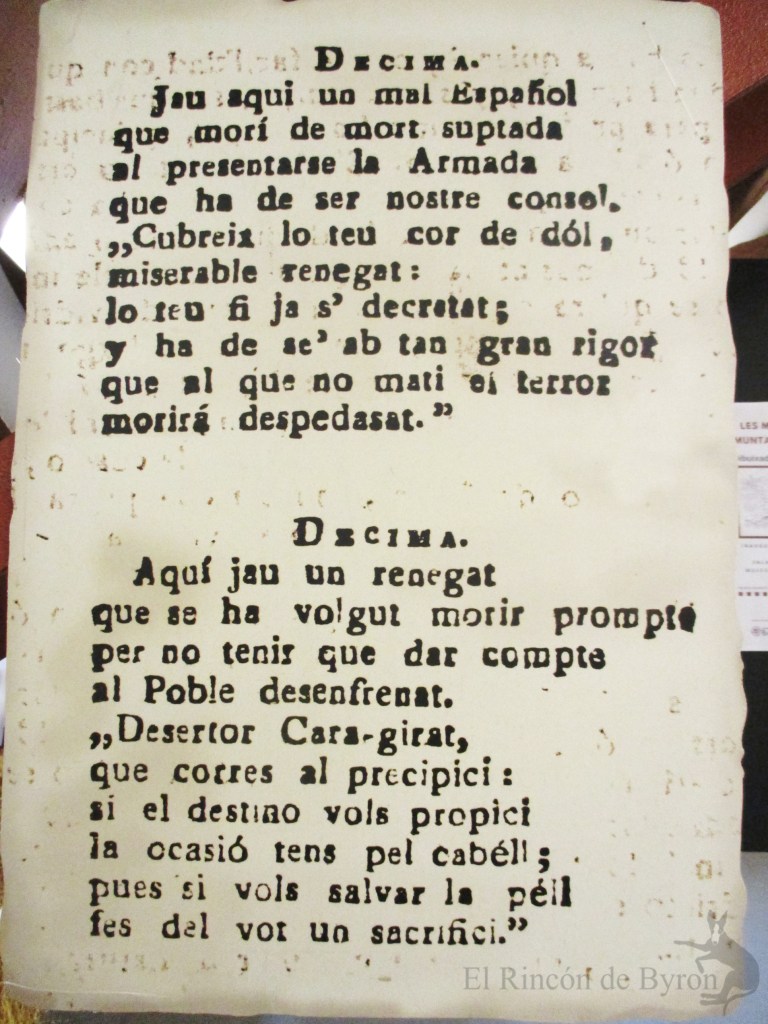 DECIMA.
Jau aqui un mal Español
que morí de mort suptada
al presentarse la Armada
que ha de ser nostre consol.
„Cubreix lo teu cor de dól,
miserable renegat:
lo teu fi ja s' decretat;
y ha de se' ab tan gran rigor
que al que no mati el terror
morirá despedasat."
DECIMA.
Aquí jau un renegat
que se ha volgut morir prompte
per no tenir que dar compte
al Poble desenfrenat.
„Desertor Cara-girat,
que corres al precipici:
si el destino vols propici
la ocasió tens pel cabéll;
pues si vols salvar la péll
fes del vot un sacrifici."
LES M
MUNTA
El Rincón de Byron